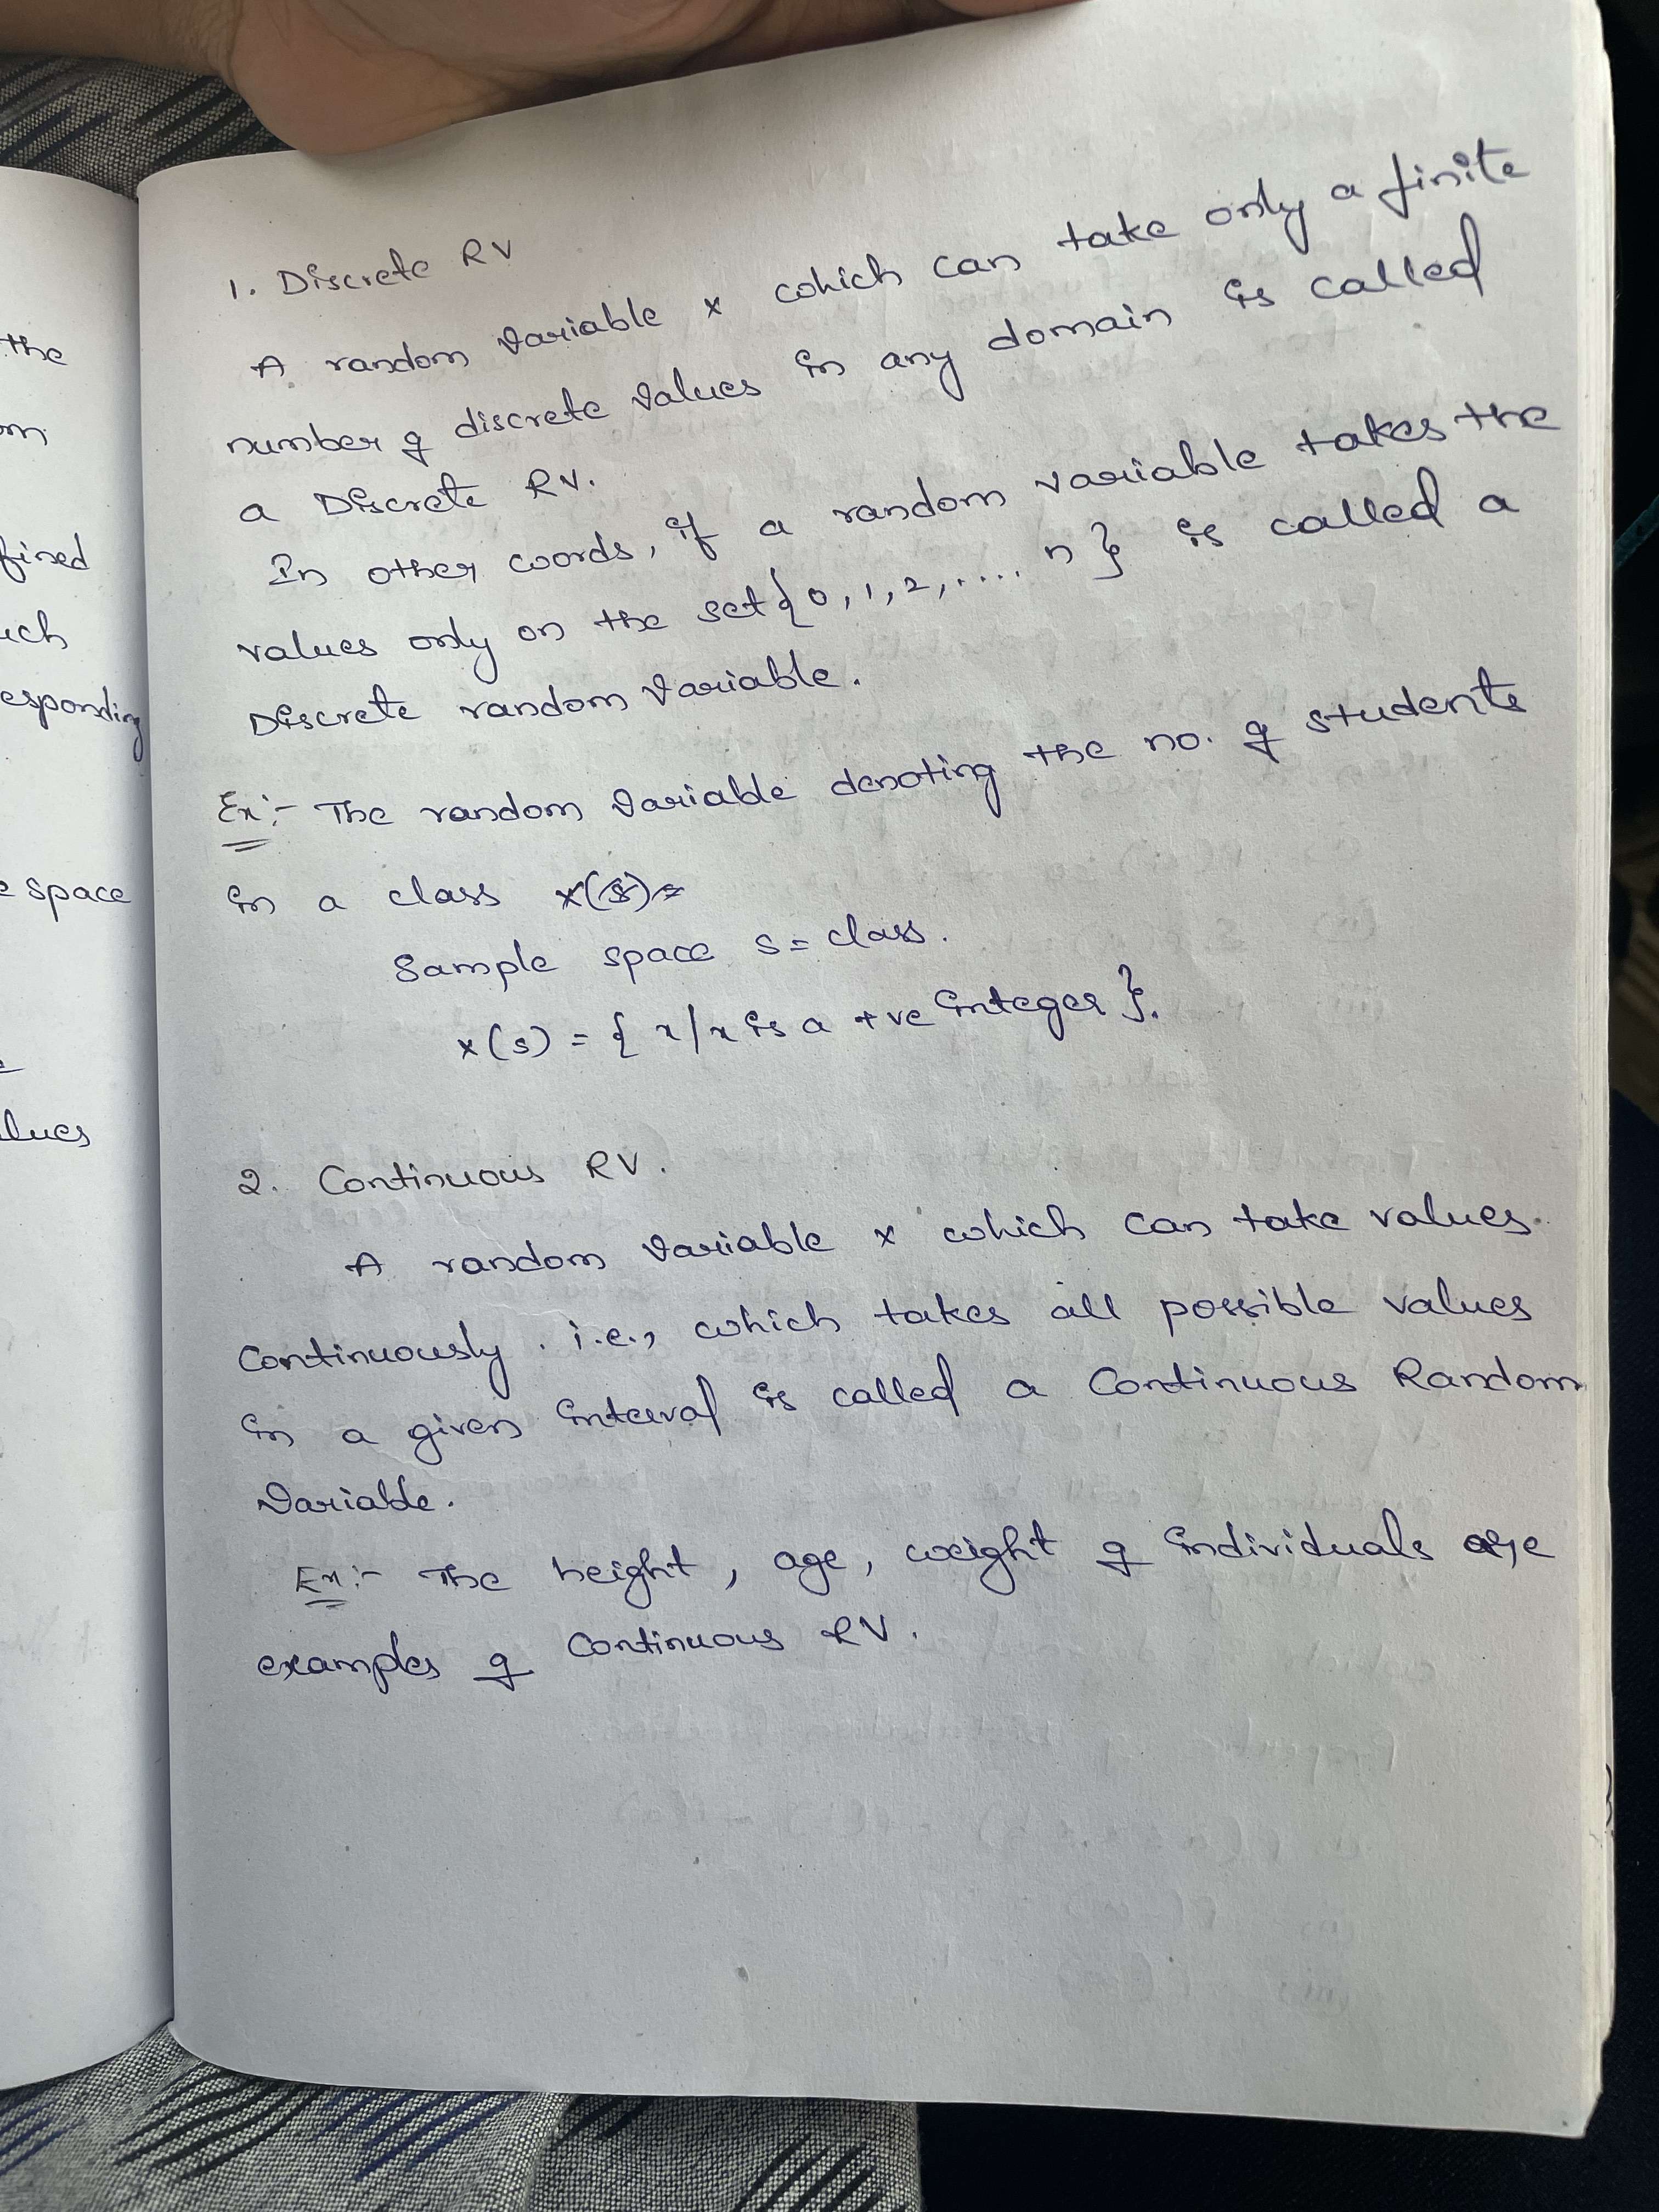 the
fined
uch
esponding
e space
lues
1. Discrete RV
A random variable x which can take only a finite
number of discrete values in any domain is called
a Discrete RV.
In other words, if a random variable takes the
values only on the set {0, 1, 2, .... n} is called a
Discrete random variable.
Ex:- The random variable denoting the no. of students
in a class
Sample space s = class.
x(s) = { x/x is a +ve integer }.
2. Continuous RV.
A random variable x which can take values.
Continuously. i.e., which takes all possible values
in a given interval is called a Continuous Random
Variable.
Ex:- The height, age, weight of individuals are
examples of Continuous RV.